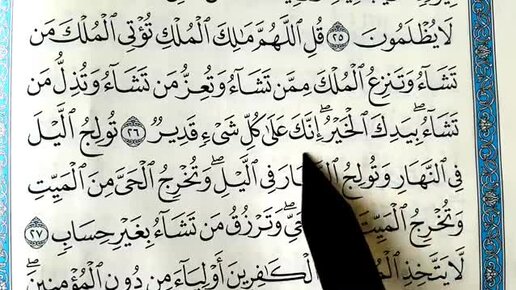 لَا يُظْلَمُونَ ٢٥ قُلِ ٱللَّهُمَّ مَٰلِكَ ٱلْمُلْكِ تُؤْتِى ٱلْمُلْكَ مَن
تَشَآءُ وَتَنزِعُ ٱلْمُلْكَ مِمَّن تَشَآءُ وَتُعِزُّ مَن تَشَآءُ وَتُذِلُّ مَن
تَشَآءُ ۖ بِيَدِكَ ٱلْخَيْرُ ۖ إِنَّكَ عَلَىٰ كُلِّ شَىْءٍ قَدِيرٌ ٢٦ تُولِجُ ٱلَّيْلَ
فِى ٱلنَّهَارِ وَتُولِجُ فِى ٱلَّيْلِ ۖ وَتُخْرِجُ ٱلْحَىَّ مِنَ ٱلْمَيِّتِ
وَتُخْرِجُ ٱلْمَيِّتَ وَتَرْزُقُ مَن تَشَآءُ بِغَيْرِ حِسَابٍ ٢٧
لَّا يَتَّخِذِ ٱلْكَٰفِرِينَ أَوْلِيَآءَ مِن دُونِ ٱلْمُؤْمِنِينَ ۖ